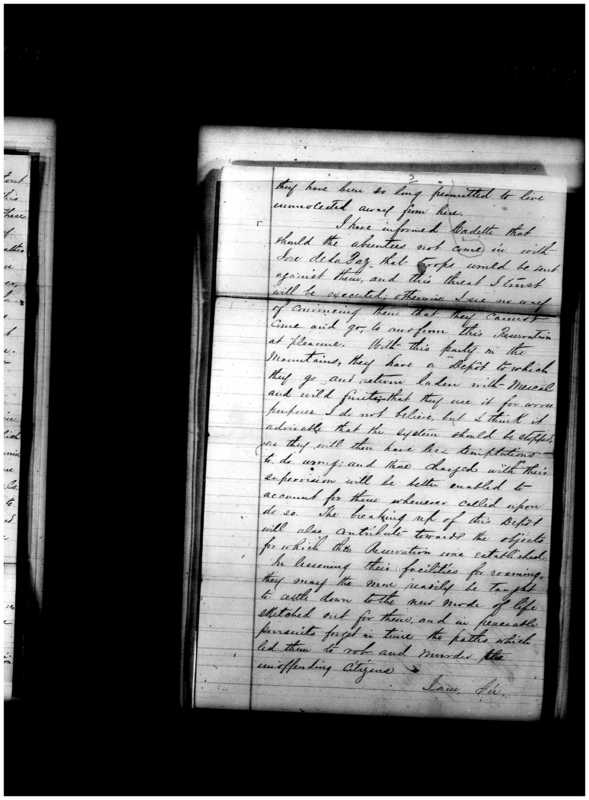 2
they have been so long permitted to live
unmolested away from here.
I have informed Cadette that
should the absentees not come in with
Jose de la Paz, that troops would be sent
against them, and this threat I trust
will be executed, otherwise I see no way
of convincing them that they cannot
come and go, to and from this Reservation
at pleasure. With this party in the
Mountains, they have a "Depot" to which
they go and return laden with Mescal
and wild fruits, that they use it for worse
purpose I do not believe, but I think it
advisable that the system should be stopped,
as they will then have less temptations
to do wrong; and those charged with their
supervision will be better enabled to
account for them whenever called upon
do so. The breaking up of this Depot
will also contribute towards the objects
for which the Reservation was established.
In lessening their facilities for roaming,
they may the more readily be taught
to settle down to the new mode of life
sketched out for them, and in peaceable
pursuits forget in time the paths which
led them to rob and murder
unoffending Citizens
I am Sir.